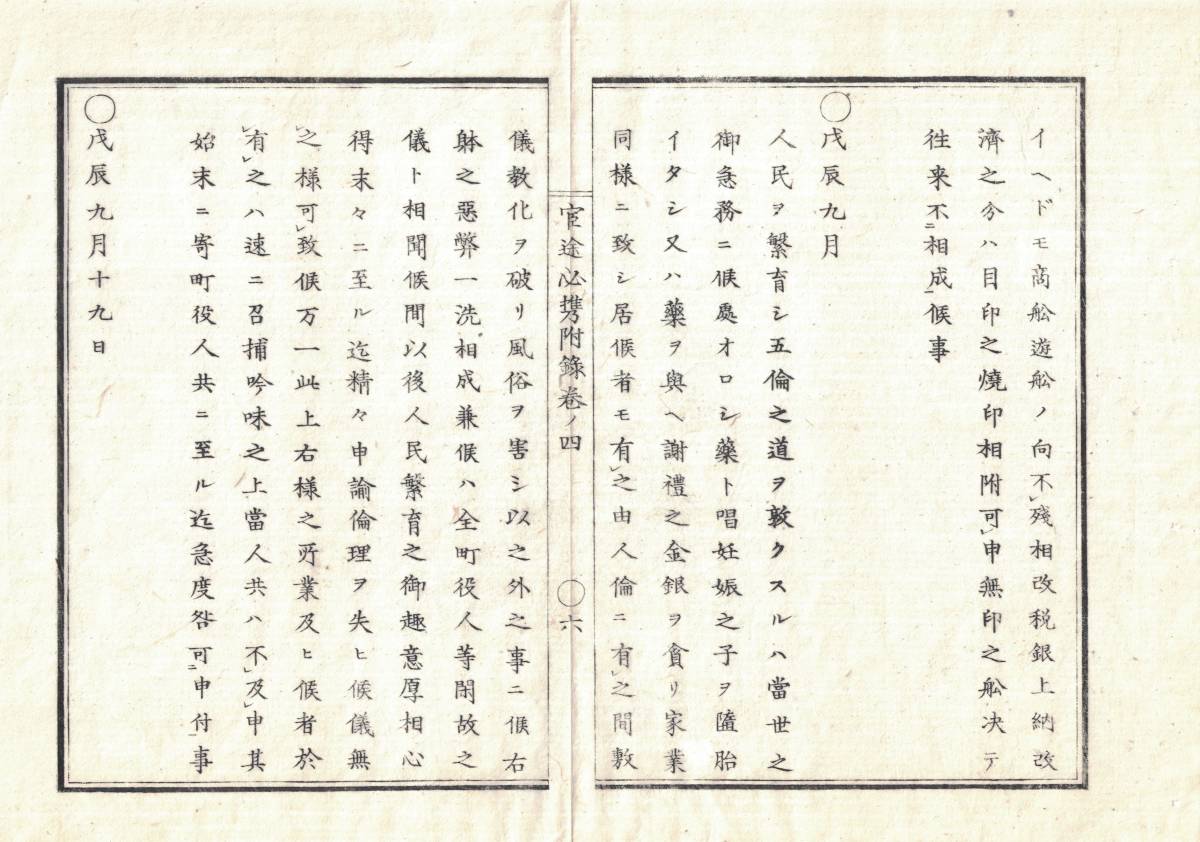 イヘドモ商舩遊舩ノ向不レ殘相改税銀上納改
濟之分ハ目印之燒印相附可レ申無印之舩决テ
徃来不ニ相成一候事
◯戊辰九月
人民ヲ繁育シ五倫之道ヲ敦クスルハ當世之
御急務ニ候處オロシ藥ト唱妊娠之子ヲ墮胎
イタシ又ハ藥ヲ與ヘ謝禮之金銀ヲ貪リ家業
同様ニ致シ居候者モ有レ之由人倫ニ有レ之間敷
官途必携附錄卷ノ四 ◯六
儀教化ヲ破リ風俗ヲ害シ以之外之事ニ候右
躰之惡弊一洗相成兼候ハ全町役人等閑故之
儀ト相聞候間以後人民繁育之御趣意厚相心
得末々ニ至ル迄精々申諭倫理ヲ失ヒ候儀無
レ之様可レ致候万一此上右様之所業及ヒ候者於
レ有レ之ハ速ニ召捕吟味之上當人共ハ不レ及レ申其
始末ニ寄町役人共ニ至ル迄急度咎可ニ申付一事
◯戊辰九月十九日